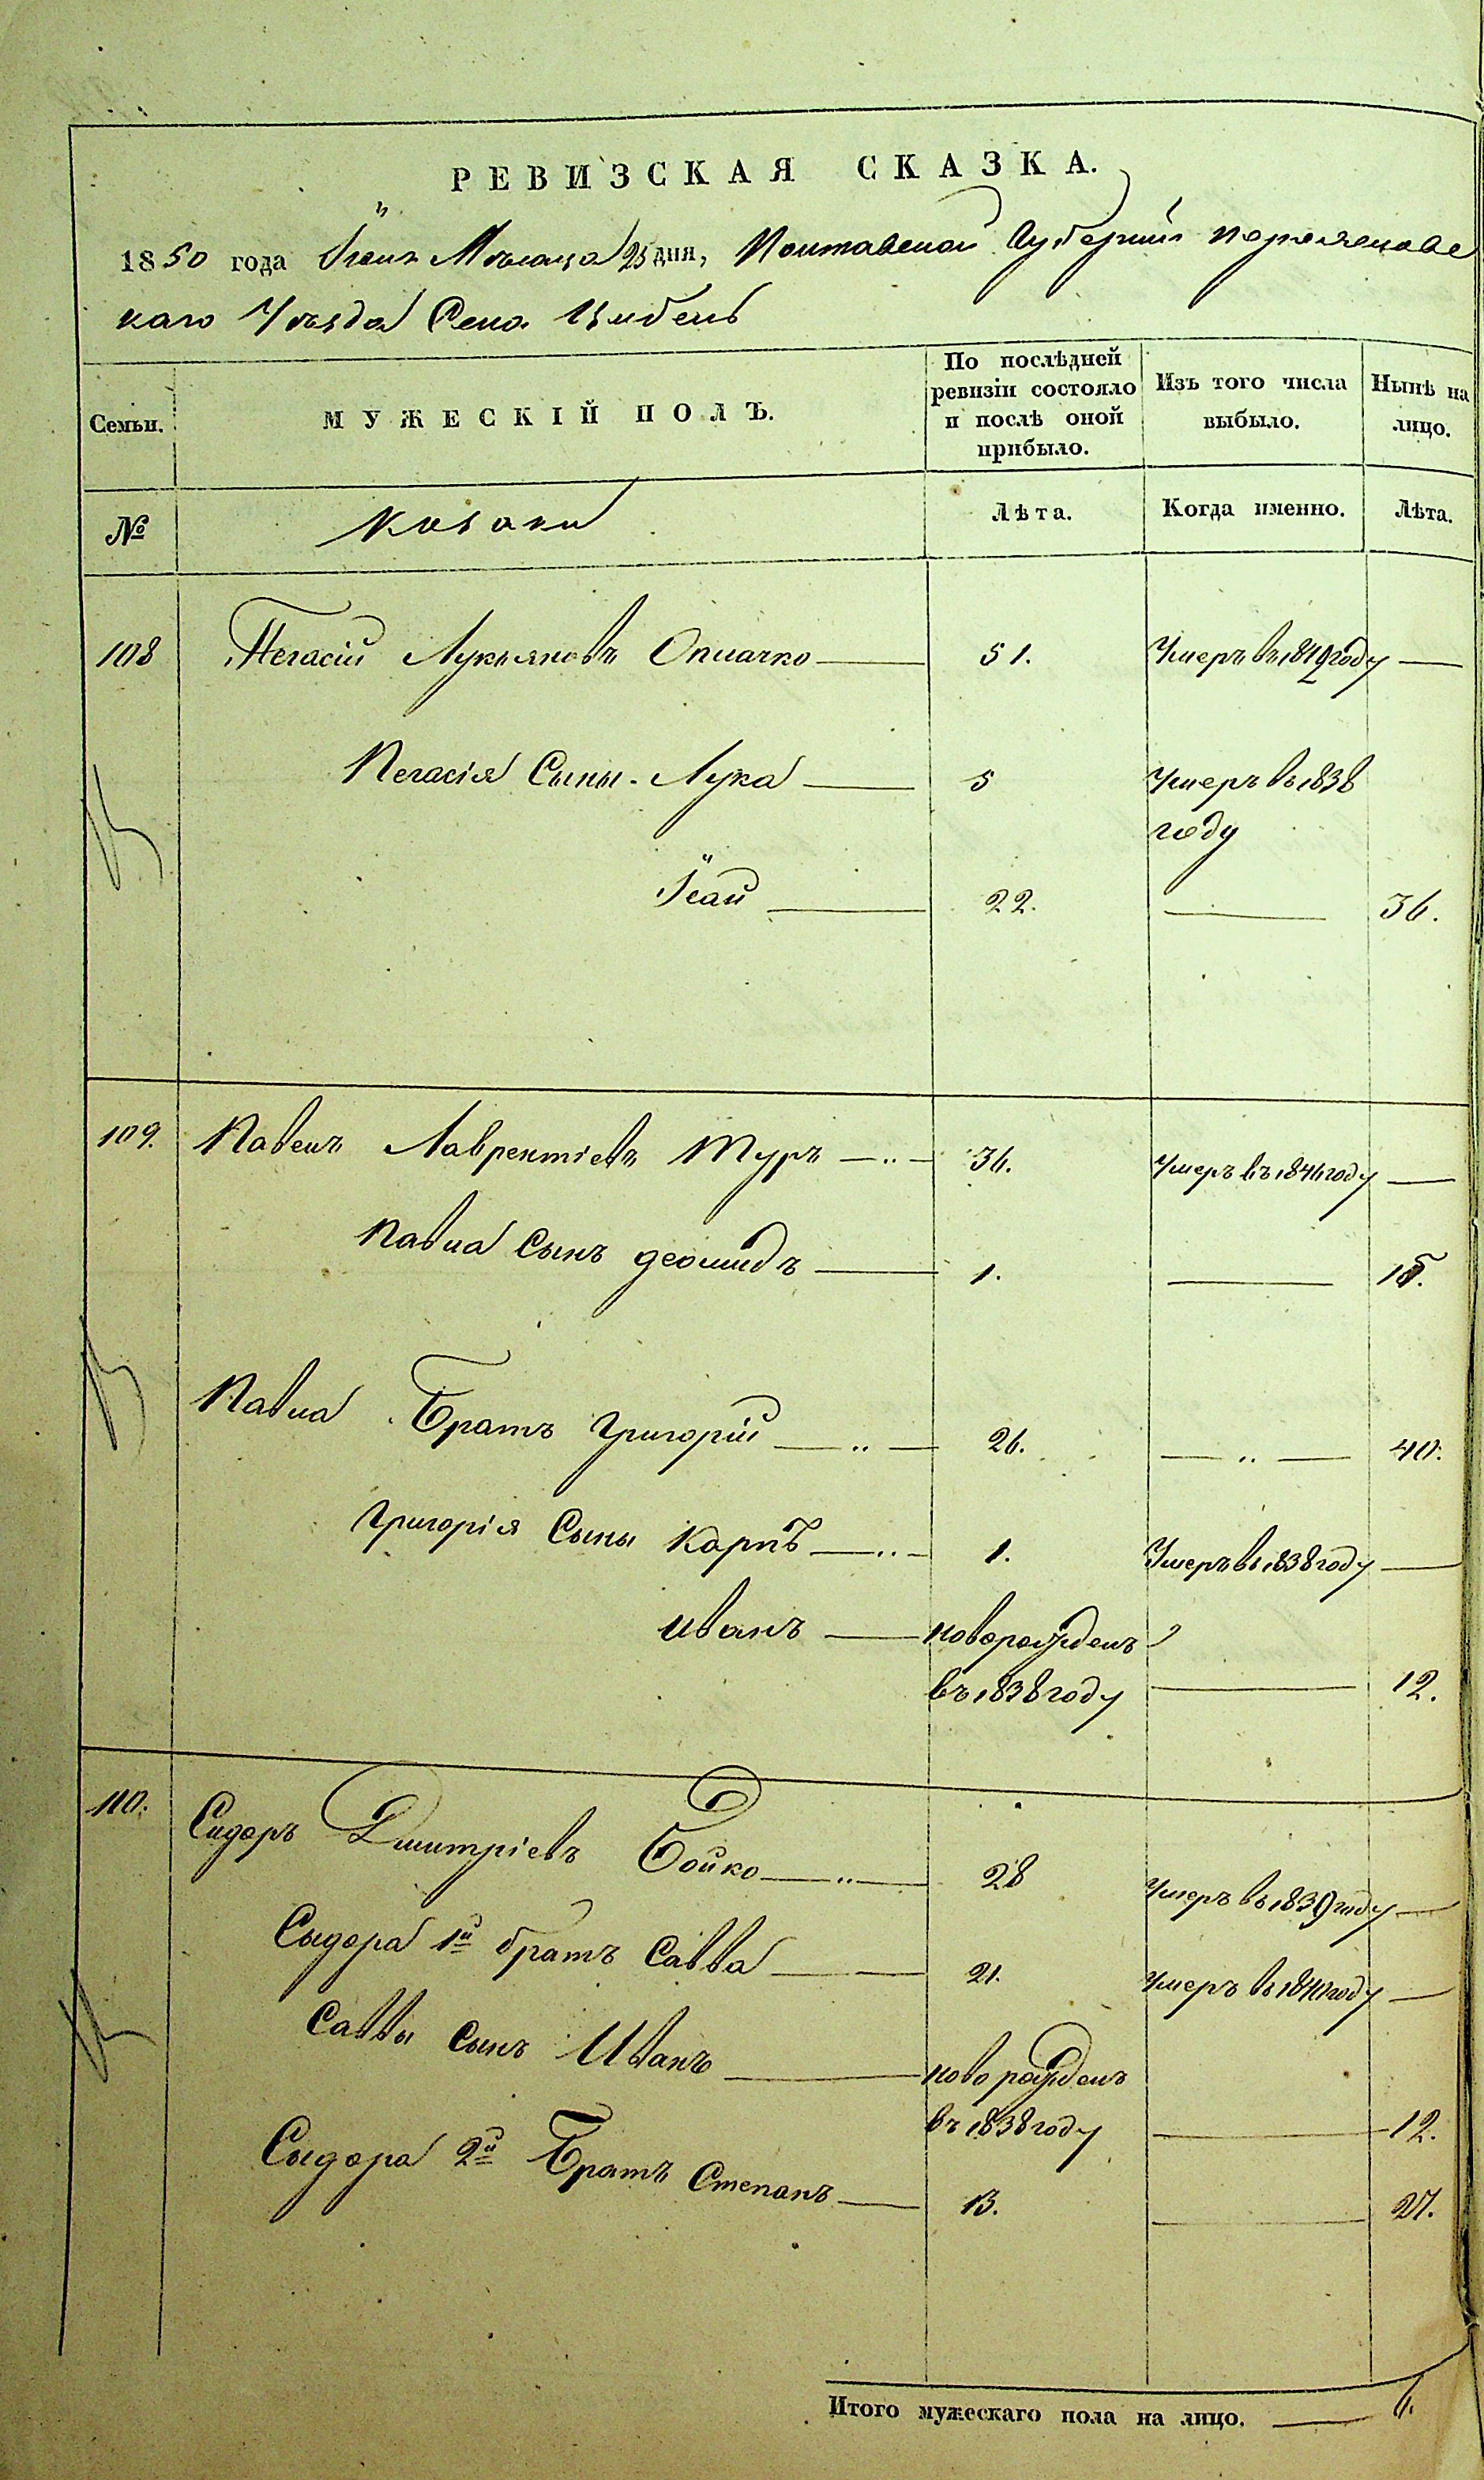 РЕВИЗСКАЯ СКАЗКА.
1850 года Іюня Мѣсяца 25 дня, Полтавской Губерніи Переяславс
каго Уѣзда Села Цыбель
Семьи.
МУЖЕСКІЙ ПОЛЪ.
По послѣдней ревизіи состояло и послѣ оной прибыло.
Изъ того числа выбыло.
Нынѣ на лицо.
№
Козаки
Лѣта.
Когда именно.
Лѣта.
108 Пегасій Лукьяновъ Опиачко 51. Умеръ въ 1842 году
Пегасія Сыны. Лука 5 Умеръ въ 1838
году
Ісай 22. 36.
109. Павелъ Лаврентіевъ Туръ 36. Умеръ въ 1846 году
Павла Сынъ Деомидъ 1. 15.
Павла Братъ Григорій 26. 40.
Григорія Сыны Карпъ 1. Умеръ въ 1838 году
Иванъ новорожденъ
въ 1838 году 12.
110. Сидоръ Дмитріевъ Бойко 28 Умеръ въ 1839 году
Сидора 1й братъ Савва 21. Умеръ въ 1841 году
Саввы Сынъ Иванъ ново рожденъ
въ 1838 году 12.
Сидора 2й Братъ Степанъ 13. 27.
Итого мужескаго пола на лицо. 6.